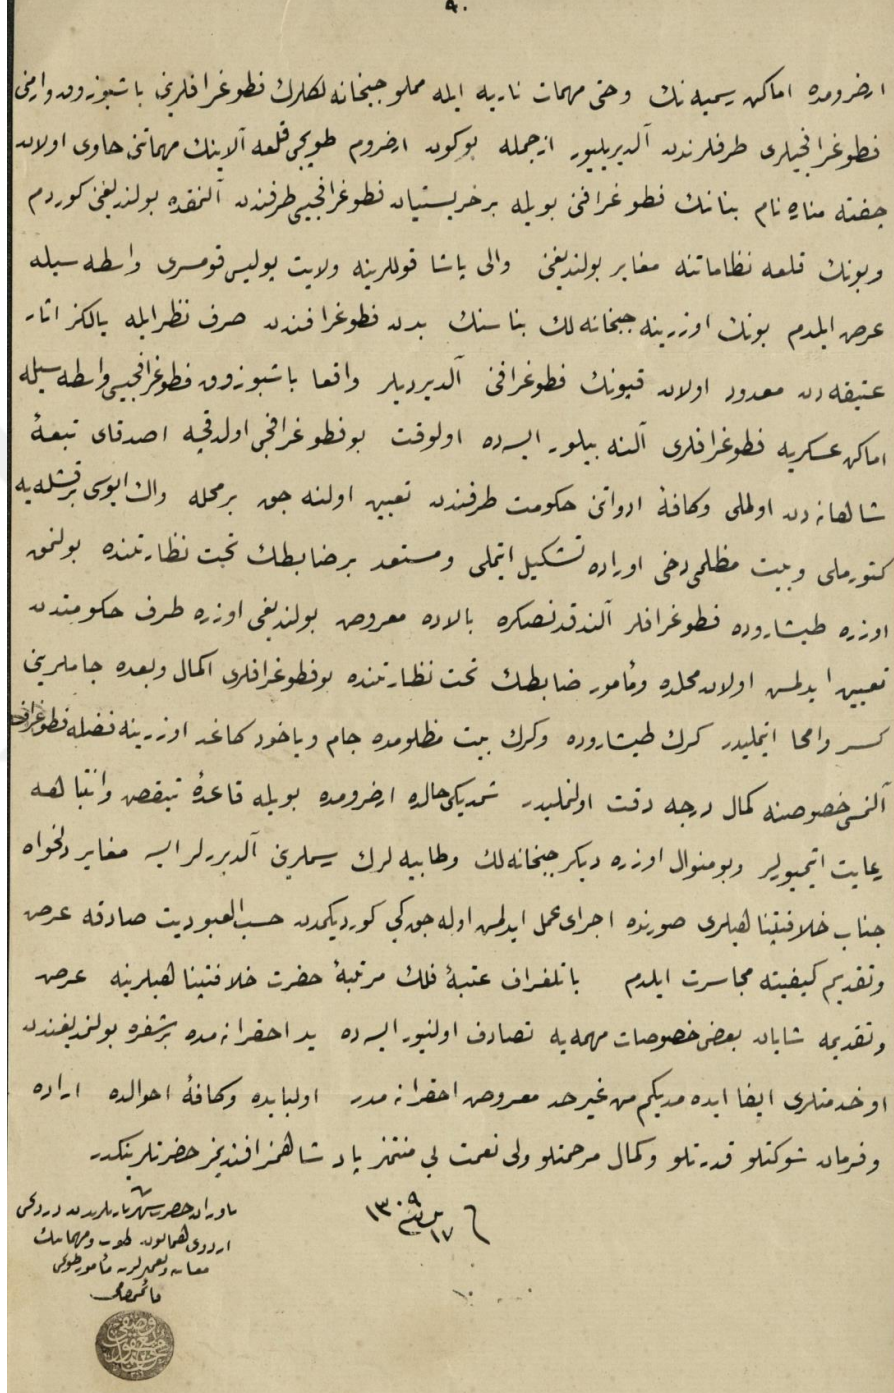 ٩٠
ارضرومده اماكن رسمیه نك وحتی مهمات ناریه ایله مملو جبخانه لكلرك فطوغرافلرینی باشبوزوق وارمنی
فطوغرافجیلری طرفلرندن آلدیریلیور ازجمله بوكون ارضروم طوپچی قلعه آلاینك مهماتنی حاوی اولان
جفته مناره نام بنانك فطوغرافنی بویله برخریستیان فطوغرافجیسی طرفندن آلنمقده بولندیغنی كوردم
وبونك قلعه نظاماتنه مغایر بولندیغنی والی پاشا قوللرینه ولایت پولیس قومسری واسطه سیله
عرض ایلدم بونك اوزرینه جبخانه لك بناسنك بدن فطوغرافندن صرف نظر ایله یالكز اثار
عتیقه دن معدود اولان قپونك فطوغرافنی آلدیردیلر واقعا باشبوزوق فطوغرافجیسی واسطه سیله
اماكن عسكریه فطوغرافلری آلنه بیلور ایسه ده اولوقت بو فطوغرافجی اولدقجه اصدقای تبعهٔ
شاهانه دن اولملی وكافهٔ ادواتنی حكومت طرفندن تعیین اولنه جق بر محله واك ایوسی بر قشله یه
كتورملی وبیت مظلمی دخی اوراده تشكیل ایتملی ومستعد بر ضابطك تحت نظارتنده بولنمق
اوزره طیشاروده فطوغرافلر آلندقدنصكره بالاده معروض بولندیغی اوزره طرف حكومتدن
تعیین ایدلمش اولان محلده ومأمور ضابطك تحت نظارتنده بو فطوغرافلری اكمال وبعده جاملرینی
كسر وامحا ایتملیدر كرك طیشاروده وكرك بیت مظلومده جام ویاخود كاغد اوزرینه فضله فطوغراف
آلنمسی خصوصنه كمال درجه دقت اولنملیدر شمدیكی حالده ارضرومده بویله قاعدهٔ تیقض وانتباهه
رعایت ایتمیورلر وبومنوال اوزره دیكر جبخانه لك وطابیه لرك رسملرینی آلدیررلر ایسه مغایر دلخواه
جناب خلافتپناهیلری صورنده اجرای عمل ایدلمش اوله جق كبی كوردیكمدن حسب العبودیت صادقه عرض
وتقدیم كیفیته مجاسرت ایلدم با تلغراف عتبهٔ فلك مرتبهٔ حضرت خلافتپناهیلرینه عرض
وتقدیمه شایان بعض خصوصات مهمه یه تصادف اولنیور ایسه ده ید احقرانه مده بر شفره بولنمدیغندن
او خدمتلری ایفا ایده مدیكم من غیر حد معروض احقرانه مدر اولبابده وكافهٔ احوالده اراده
وفرمان شوكتلو قدرتلو وكمال مرحمتلو ولی نعمت بی منتمز پادشاهمز افندیمز حضرتلرینكدر
١٧ ١٣٠٩
یاوران حضرت شهریاریلرندن دردنجی
اردوی همایون طوپ ومهماتنك
معاینه وتعمیرلرینه مأمور طوپجی
قائمقامی